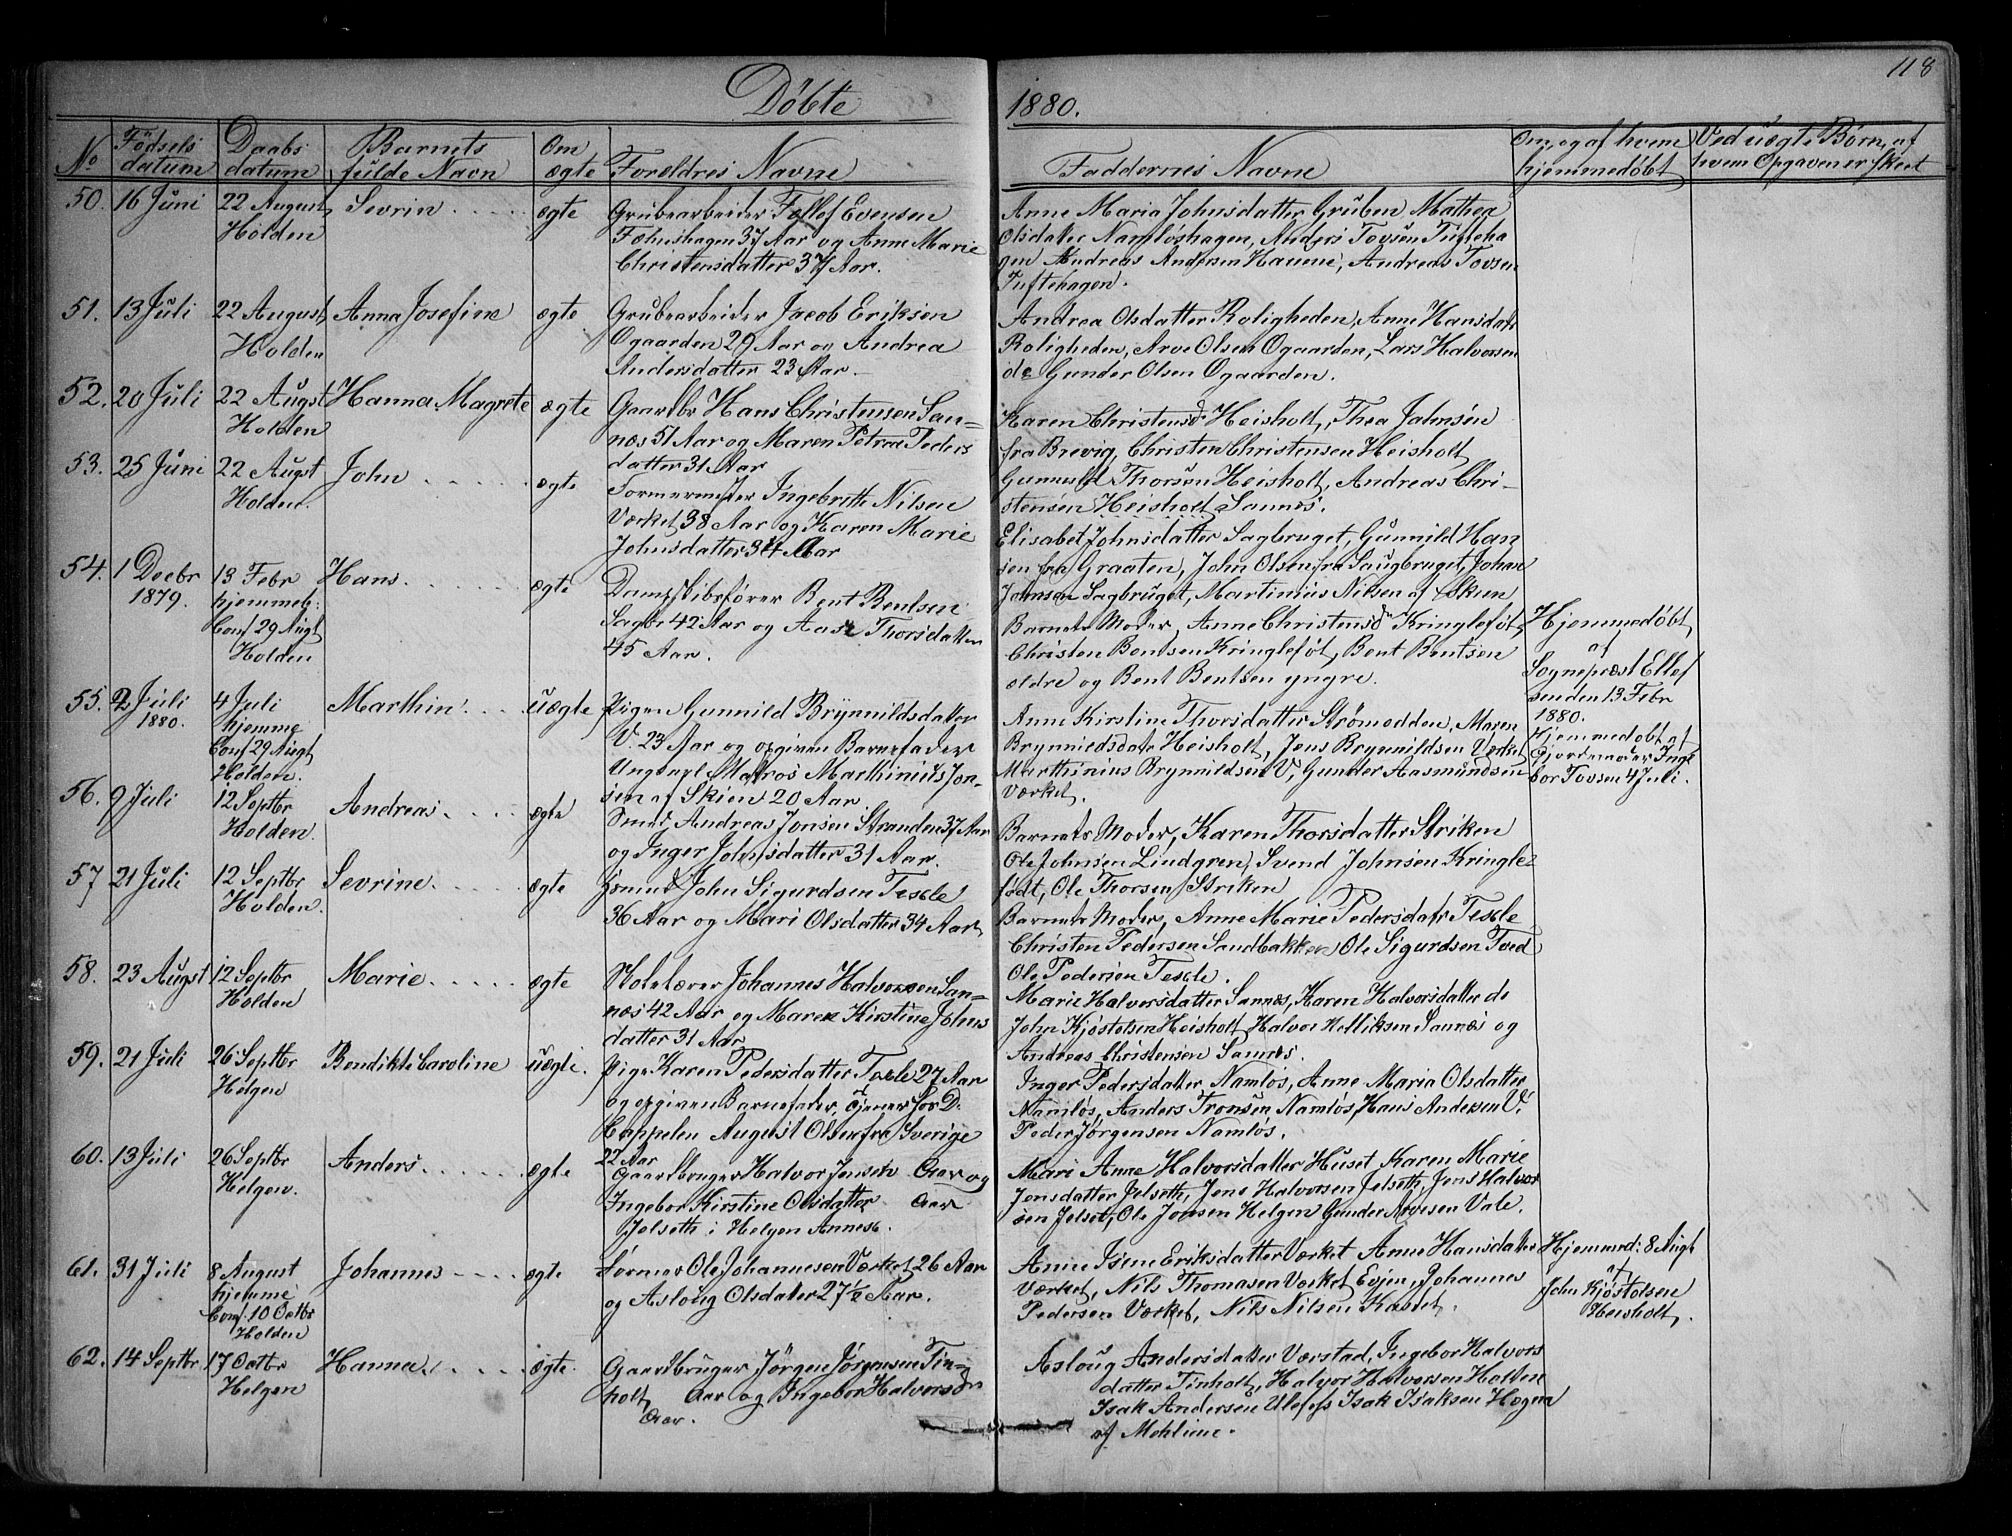 118
Döbte
1880.
No
Födsels datum
Daabs datum
Barnets fulde Navn
Om ægte
Forældres Navne
Faddernes Navne
Om, og af hvem hjemmedøbt
Ved uægte Børn, af hvem Opgaven er skeet
50. 16 Juni 22 August Holden Sevrin ægte
Grubearbeider Tollef Evensen
37 Aar og Anne Marie
Christensdatter 37 Aar.
Anne Maria Johnsdatter Gruben Mathea
Olsdatter Namløshagen, Anders Tovsen Tufteha
gen Andreas Andersen Haune, Andreas Tovsen
Tuftehagen.
51. 13 Juli 22 August Holden Anna Josefine ægte
Grubearbeider Jacob Eriksen
Ogaarden 29 Aar og Andrea
Andersdatter 23 Aar.
Andrea Olsdatter Roligheden, Anne Hansdatr
Roligheden, Arve Olsen Ogaarden, Lars Halvorsen
de Gunder Olsen Ogaarden.
52. 20 Juli 22 Augst Holden Hanna Magrete ægte
Gaardbr Hans Christensen San=
næs 51 Aar og Maren Petrea Peders
datter 31 Aar
Karen Christensd Heisholt, Thea Jahnsen
fra Brevig, Christen Christensen Heisholt
Gunnuld Thorsen Heisholt, Andreas Chri-
stensen Heisholt Sannes.
53. 25 Juni 22 Augst Holden. John ægte
Formermester Ingebrett Nilsen
Værket 38 Aar og Karen Marie
Johnsdatter 34 Aar
Elisabet Johnsdatter Sagbruget, Gunnild Han
sen fra Graaten, John Olsen fra Saugbruget, Johan
Johnsen Sagbruget, Martinius Nilsen af Skien
54. 1 Decbr 1879. 13 Febr hjemmeb: Conf 29 Augt Holden Hans ægte
Dampskibsfører Bent Bentsen
42 Aar og Aase Thorsdatter
45 Aar.
Barnets Moder, Anne Christensdr Kringlefot,
Christen Bentsen Kringlefot, Bent Bentsen
ældre og Bent Bentsen yngre.
Hjemmedøbt
af
Sognepræst Ellef
sen den 13 Febr
1880.
55. 2 Juli 1880. 4 Juli hjemme Conf 29 Augt Holden. Marthin uægte
Pigen Gunnild Brynnildsdatter
V. 23 Aar og opgiven Barnefader
Ungkarl Matros Marthinius Jon-
sen af Skien 20 Aar
Anne Kirstine Thorsdatter Strømodden, Maren
Brynnildsdatr Heisholt, Jens Brynnildsen Værket
Marthinius Brynnildsen V, Gunder Aasmundsen
Værket.
Hjemmedøbt af
Gjordmoder Inge
bor Tovsen 4 Juli.
56. 9 Juli 12 Septbr Holden. Andreas ægte
Smed Andreas Jonsen Stranden 37 Aar
og Inger Johnsdatter 31 Aar.
Barnets Moder, Karen Thorsdatter Striken
Ole Johnsen Lindgren, Svend Johnsen Kringle=
födt, Ole Thorsen Striken
57 21 Juli 12 Septbr Holden. Sevrine ægte
John Sigurdsen Teksle
36 Aar og Mari Olsdatter 34 Aar
Barnets Moder, Anne Marie Pedersdatr Teksle
Christen Pedersen Sandbakken Ole Sigurdsen Tved
Ole Pedersen Teksle.
58. 23 Augst 12 Septbr Holden Marie ægte
Skolelærer Johannes Halvorsen San=
næs 42 Aar og Maren Kirstine Johns
datter 31 Aar
Marie Halvorsdatter Sannes, Karen Halvorsdatter de
John Kjøstelsen Heisholt, Halvor Melliksen Sannes og
Andreas Christensen Sannes.
59. 21 Juli 26 Septbr Helgen Bendikte Caroline uægte.
Pige Karen Pedersdatter Teksle 27 Aar
og opgiven Barnefader, tjener for D.
Cappelen August Olsen fra Sverige
22 Aar
Inger Pedersdatter Namløs, Anne Maria Olsdatter
Namløs, Anders Tronsen Namløs, Hans Andersen V.
Peder Jørgensen Namløs.
60. 13 Juli 26 Septbr Helgen. Anders ægte
Gaardbruger Halvor Jensen Aar og
Ingebor Kirstine Olsdatter Aar
Jelseth i Helgen Annex.
Mari Anne Halvorsdatter Huset Karen Marie
Jonsdatter Jelseth, Jens Halvorsen Jelseth, Jens Halvor
sen Jelset, Ole Jonsen Helgen Gunder Arvesen Vale.
61. 31 Juli 8 August hjemme Conf. 10 Octbr Holden Johannes ægte
Former Ole Johannesen Værket 26 Aar
og Aslaug Olsdatter 27 1/2 Aar.
Anne Isene Eriksdatter Værket Anne Hansdatter
Værket, Nils Thomasen Værket Evjen, Johannes
Pedersen Værket, Nils Nilsen Kastet.
Hjemmed: 8 Augt
af
John Kjøstolsen
Heisholt.
62. 14 Septbr 17 Octbr Helgen Hanna ægte
Gaardbruger Jörgen Jörgensen Tin=
holt, Aar og Ingebor Halvorsdr
Aar.
Asloug Andersdatter Værstad, Ingebor Halvors
datter Tinholt, Halvor Halvorsen Holten
Isak Andersen Ulefoss Isak Isaksen Hægna
af Mehlime.